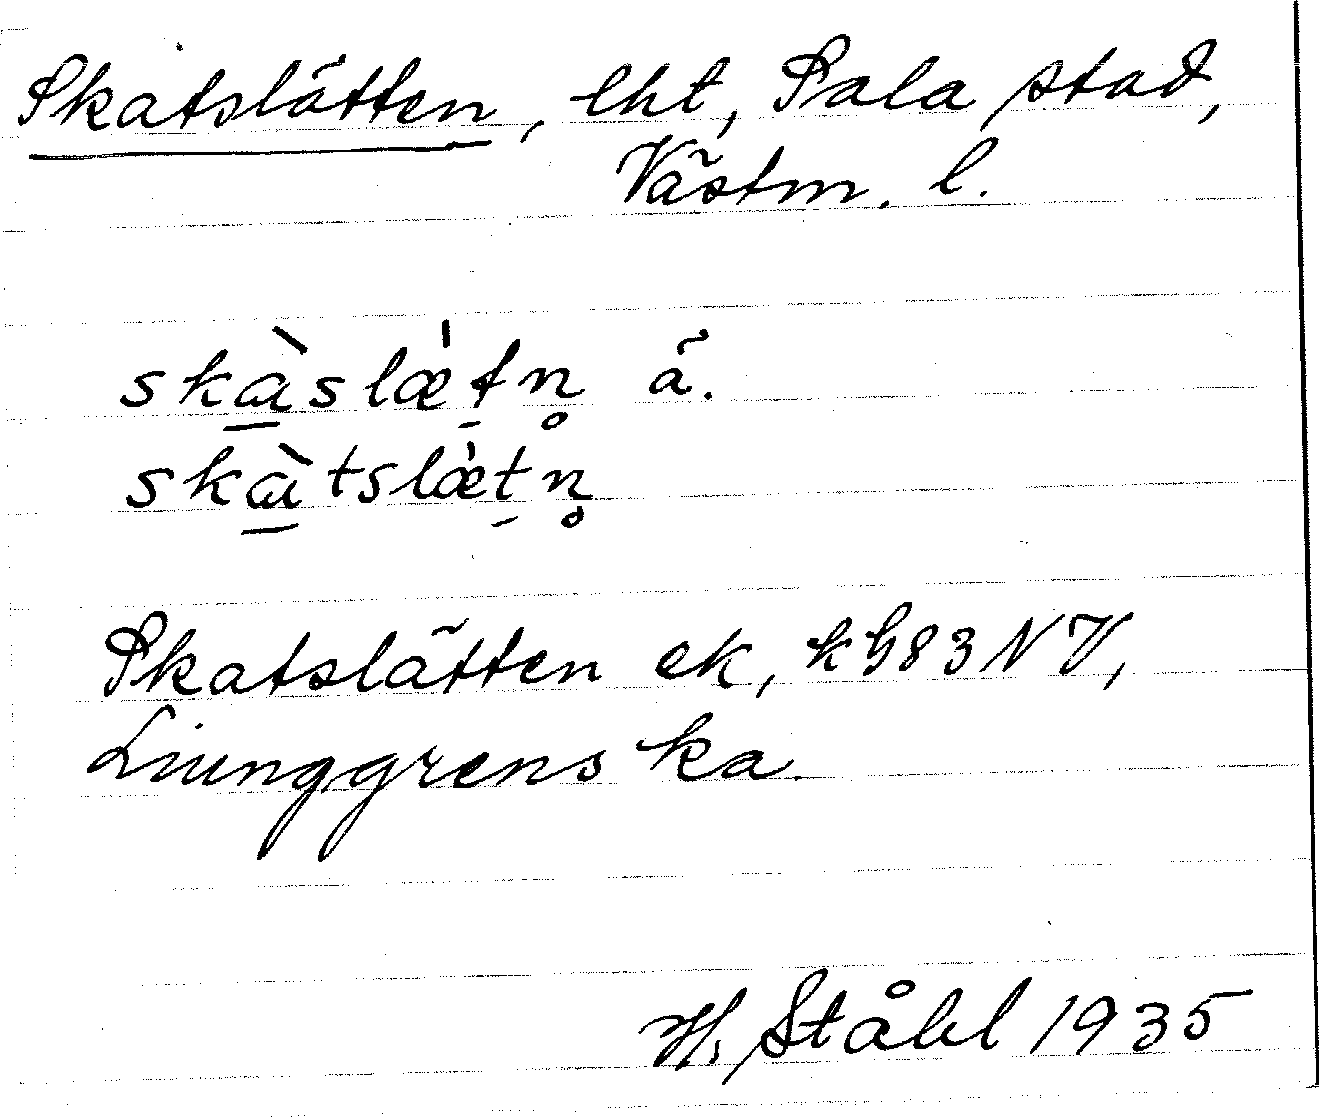 Skatslätten, lht, Sala stad,
Västm. l.
skàslæ̀tn̥ ä.
skàtslæ̀tn̥
Skatslätten ek, kG83NV,
Liunggrens ka.
H. Ståhl 1935